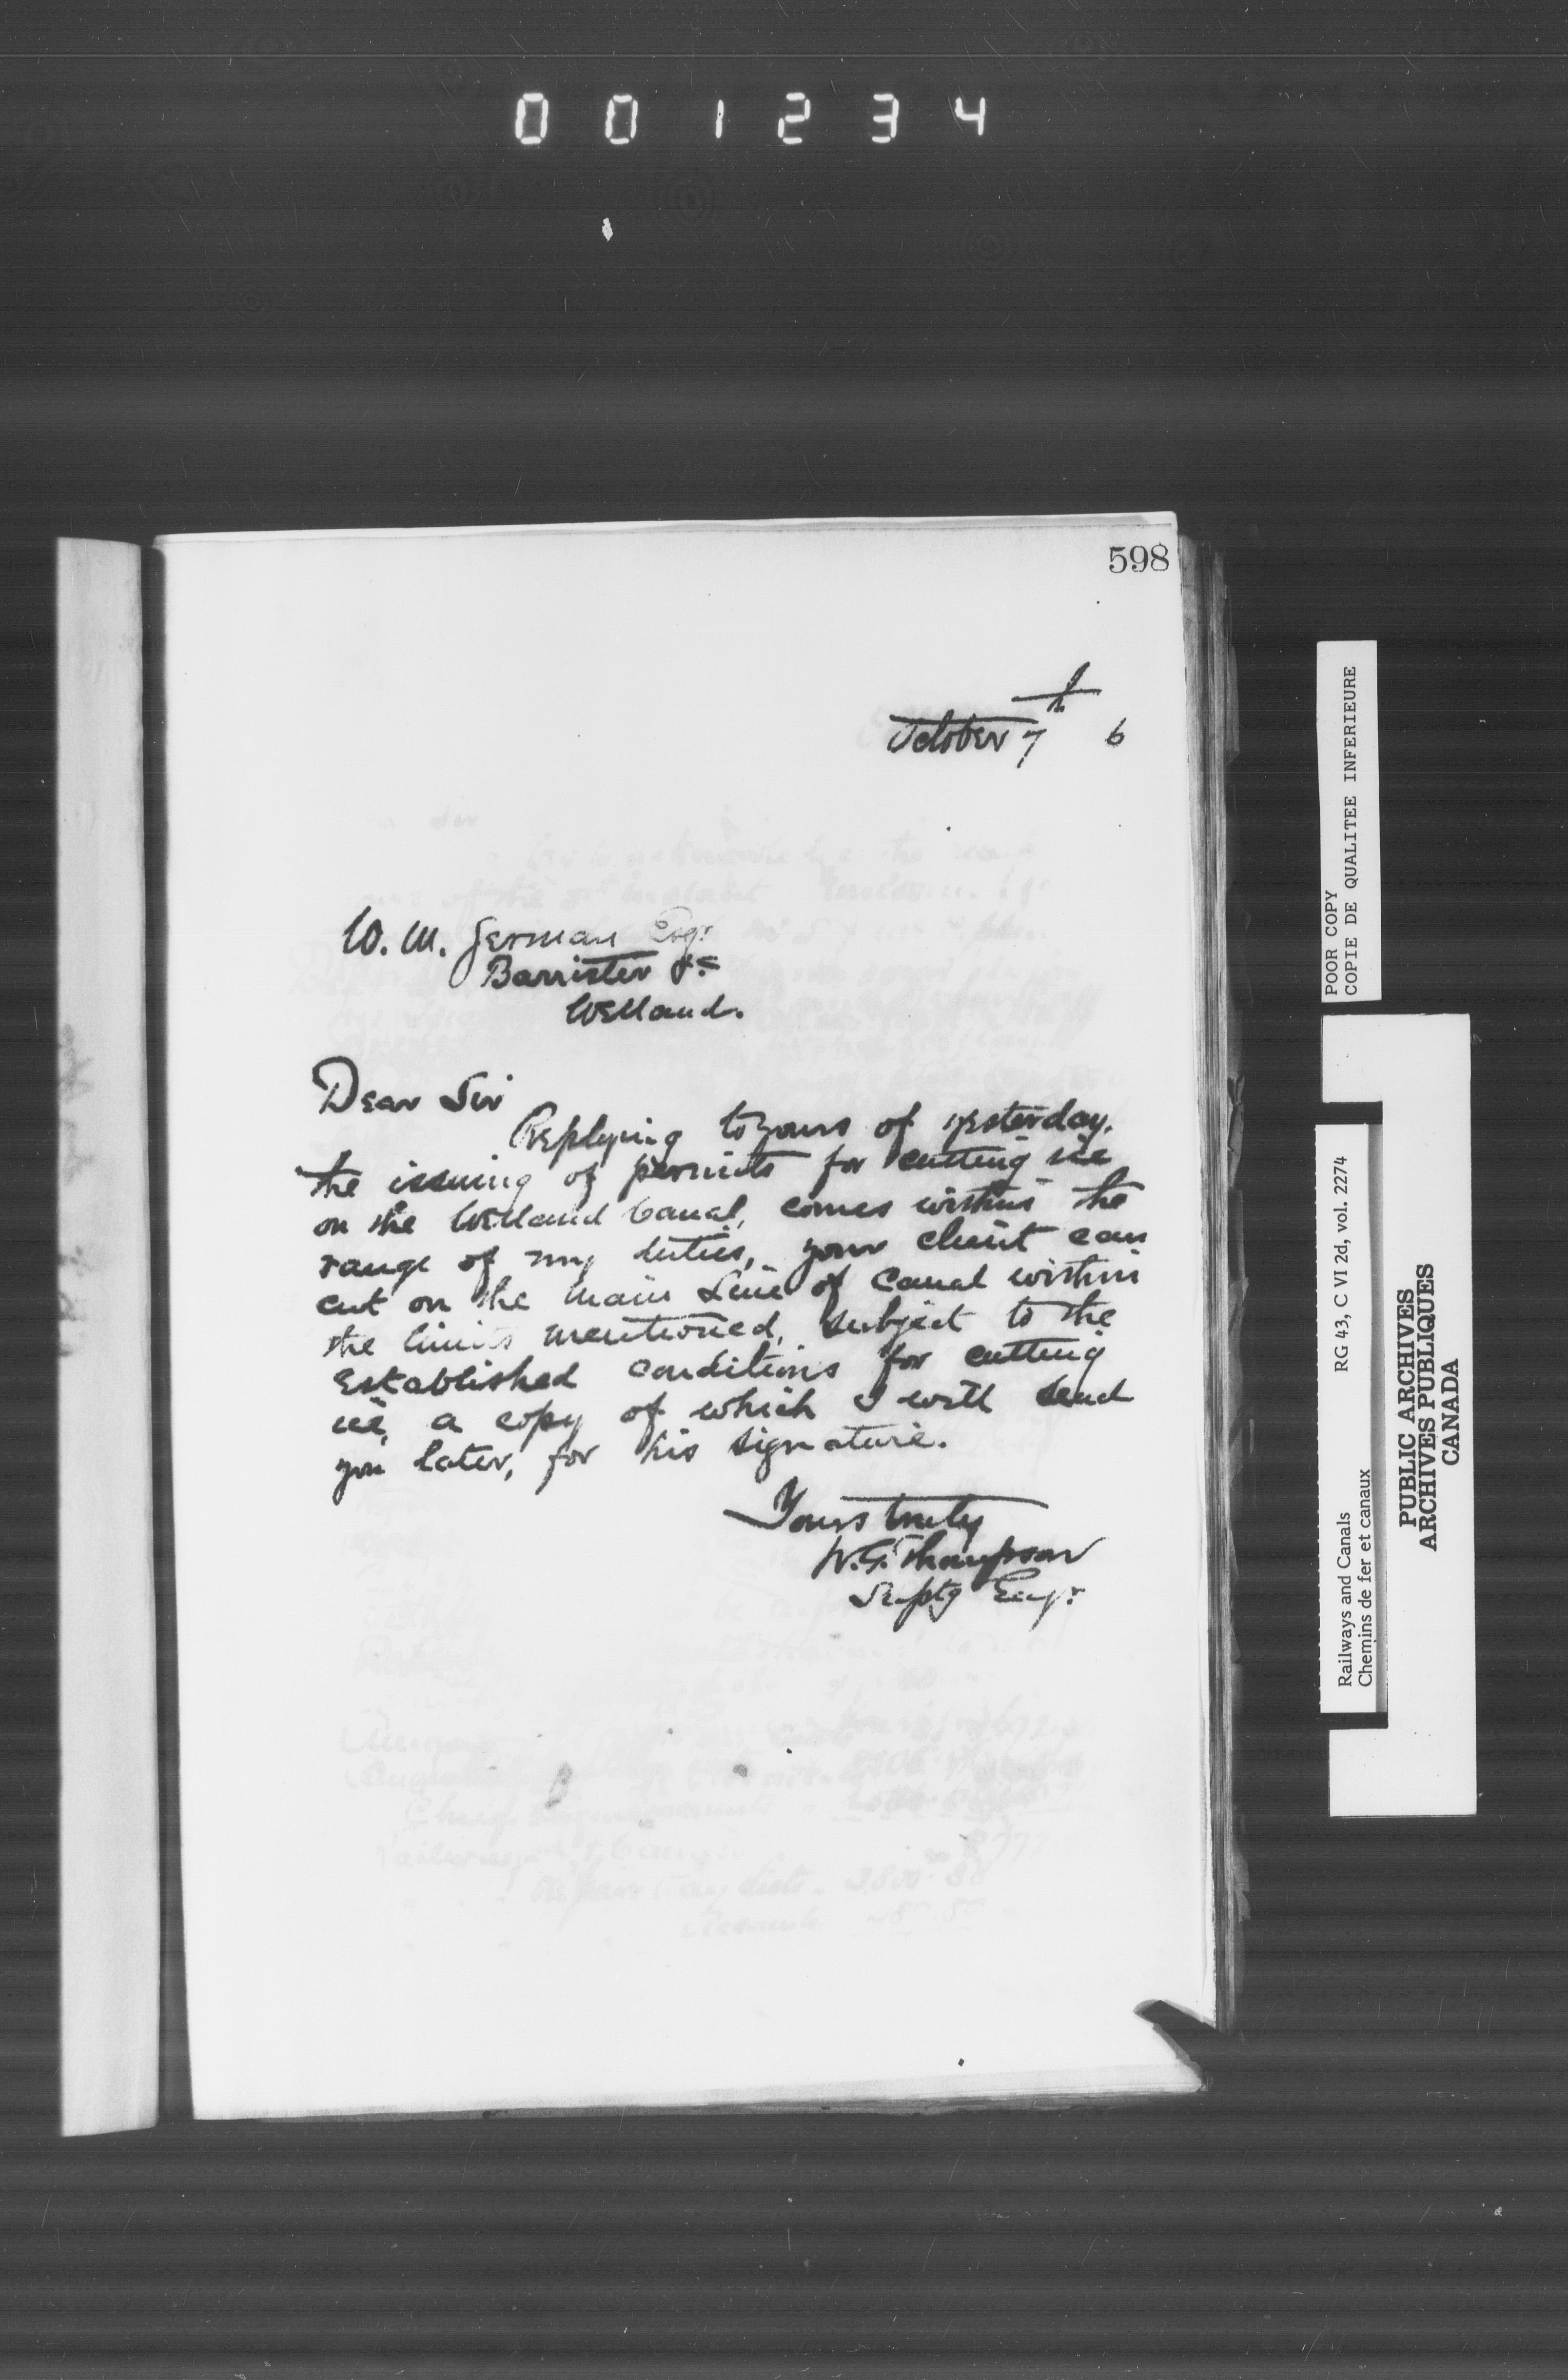 001234
598
October 7th 6
W. M. German Esqr
Barrister &c
Welland.
Dear Sir
Replying to yours of yesterday.
the issuing of permits for cutting ice
on the Welland Canal, comes within the
range of my duties, your client can
cut on the Main Line of Canal within
the limits mentioned, subject to the
Established conditions for cutting
ice, a copy of which I will send
you later, for his signature.
Yours truly
W. G. Thompson
Suptg Engr
POOR COPY
COPIE DE QUALITEE INFERIEURE
Railways and Canals RG 43, C VI 2d, vol. 2274
Chemins de fer et canaux
PUBLIC ARCHIVES
ARCHIVES PUBLIQUES
CANADA